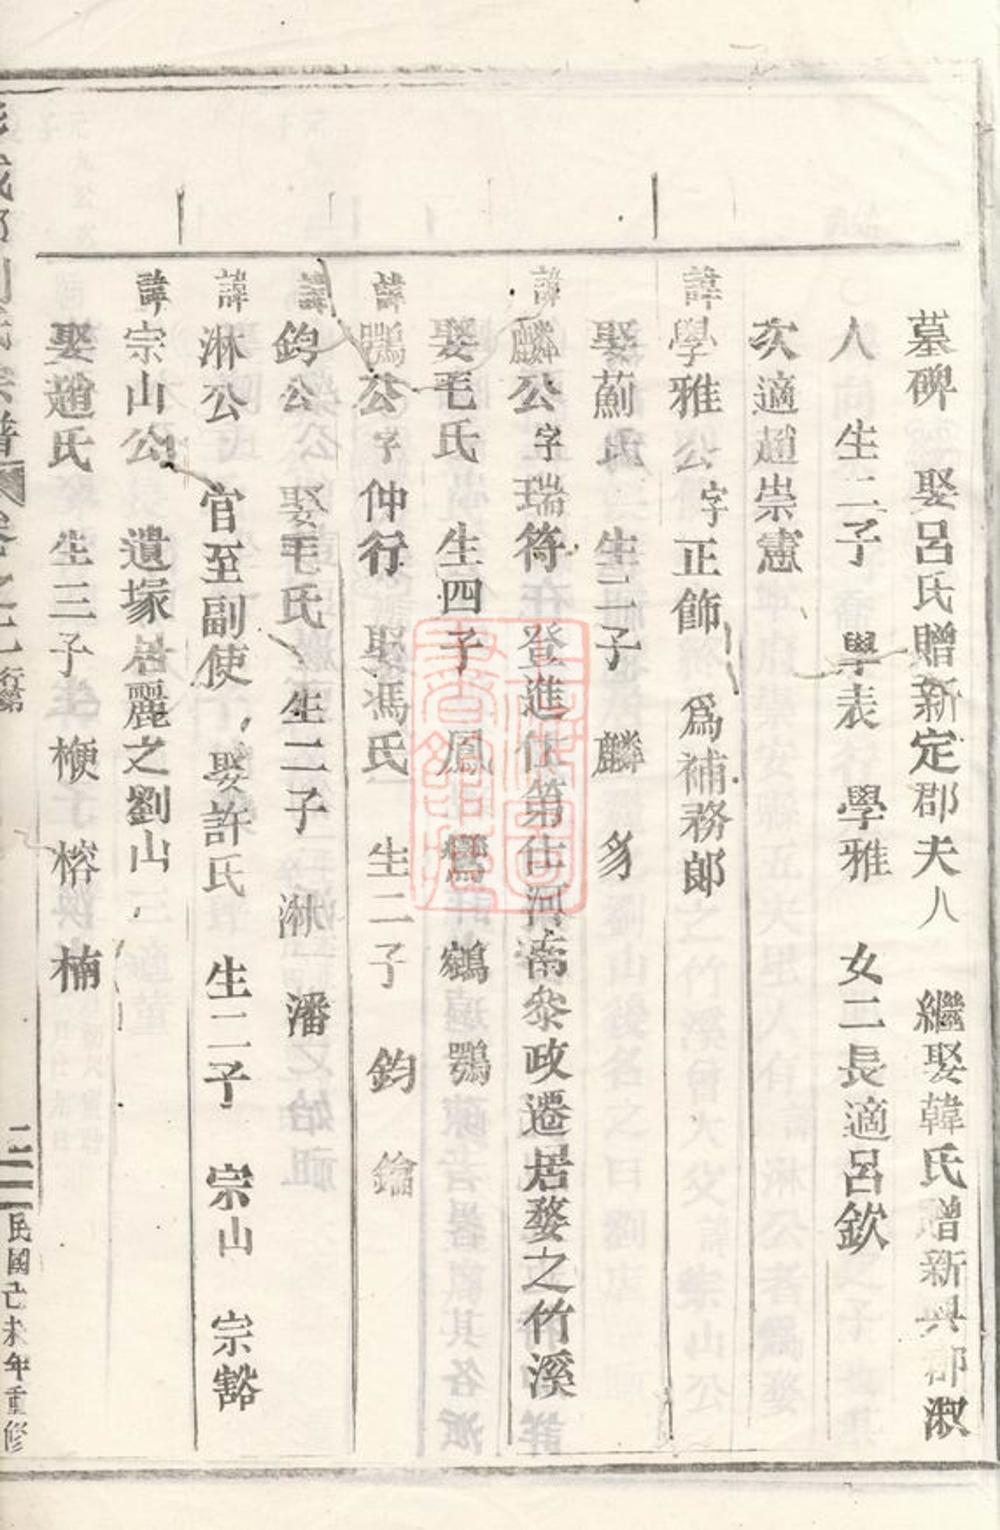 墓碑 娶呂氏贈新定郡夫人 繼娶韓氏贈新興郡淑
人 生二子 學表 學雅 女二長適呂欽
次適趙崇憲
諱學雅公 字正飾 爲補務郎
娶薊氏 生二子 麟 豸
諱麟公字瑞符 登進仕第仕河南叅政遷居婺之竹溪
娶毛氏 生四子 鳳 鸞 鶴 鶚
諱鶚公字仲行 娶馮氏 生二子 鈞 鑰
諱鈞公 娶毛氏 生二子 淋 潘
諱淋公 官至副使 娶許氏 生二子 宗山 宗豁
諱宗山公 遺塚居麗之劉山
娶趙氏 生三子 楩 榕 楠
氏宗譜 卷之一 行第 二 民國己未年重修